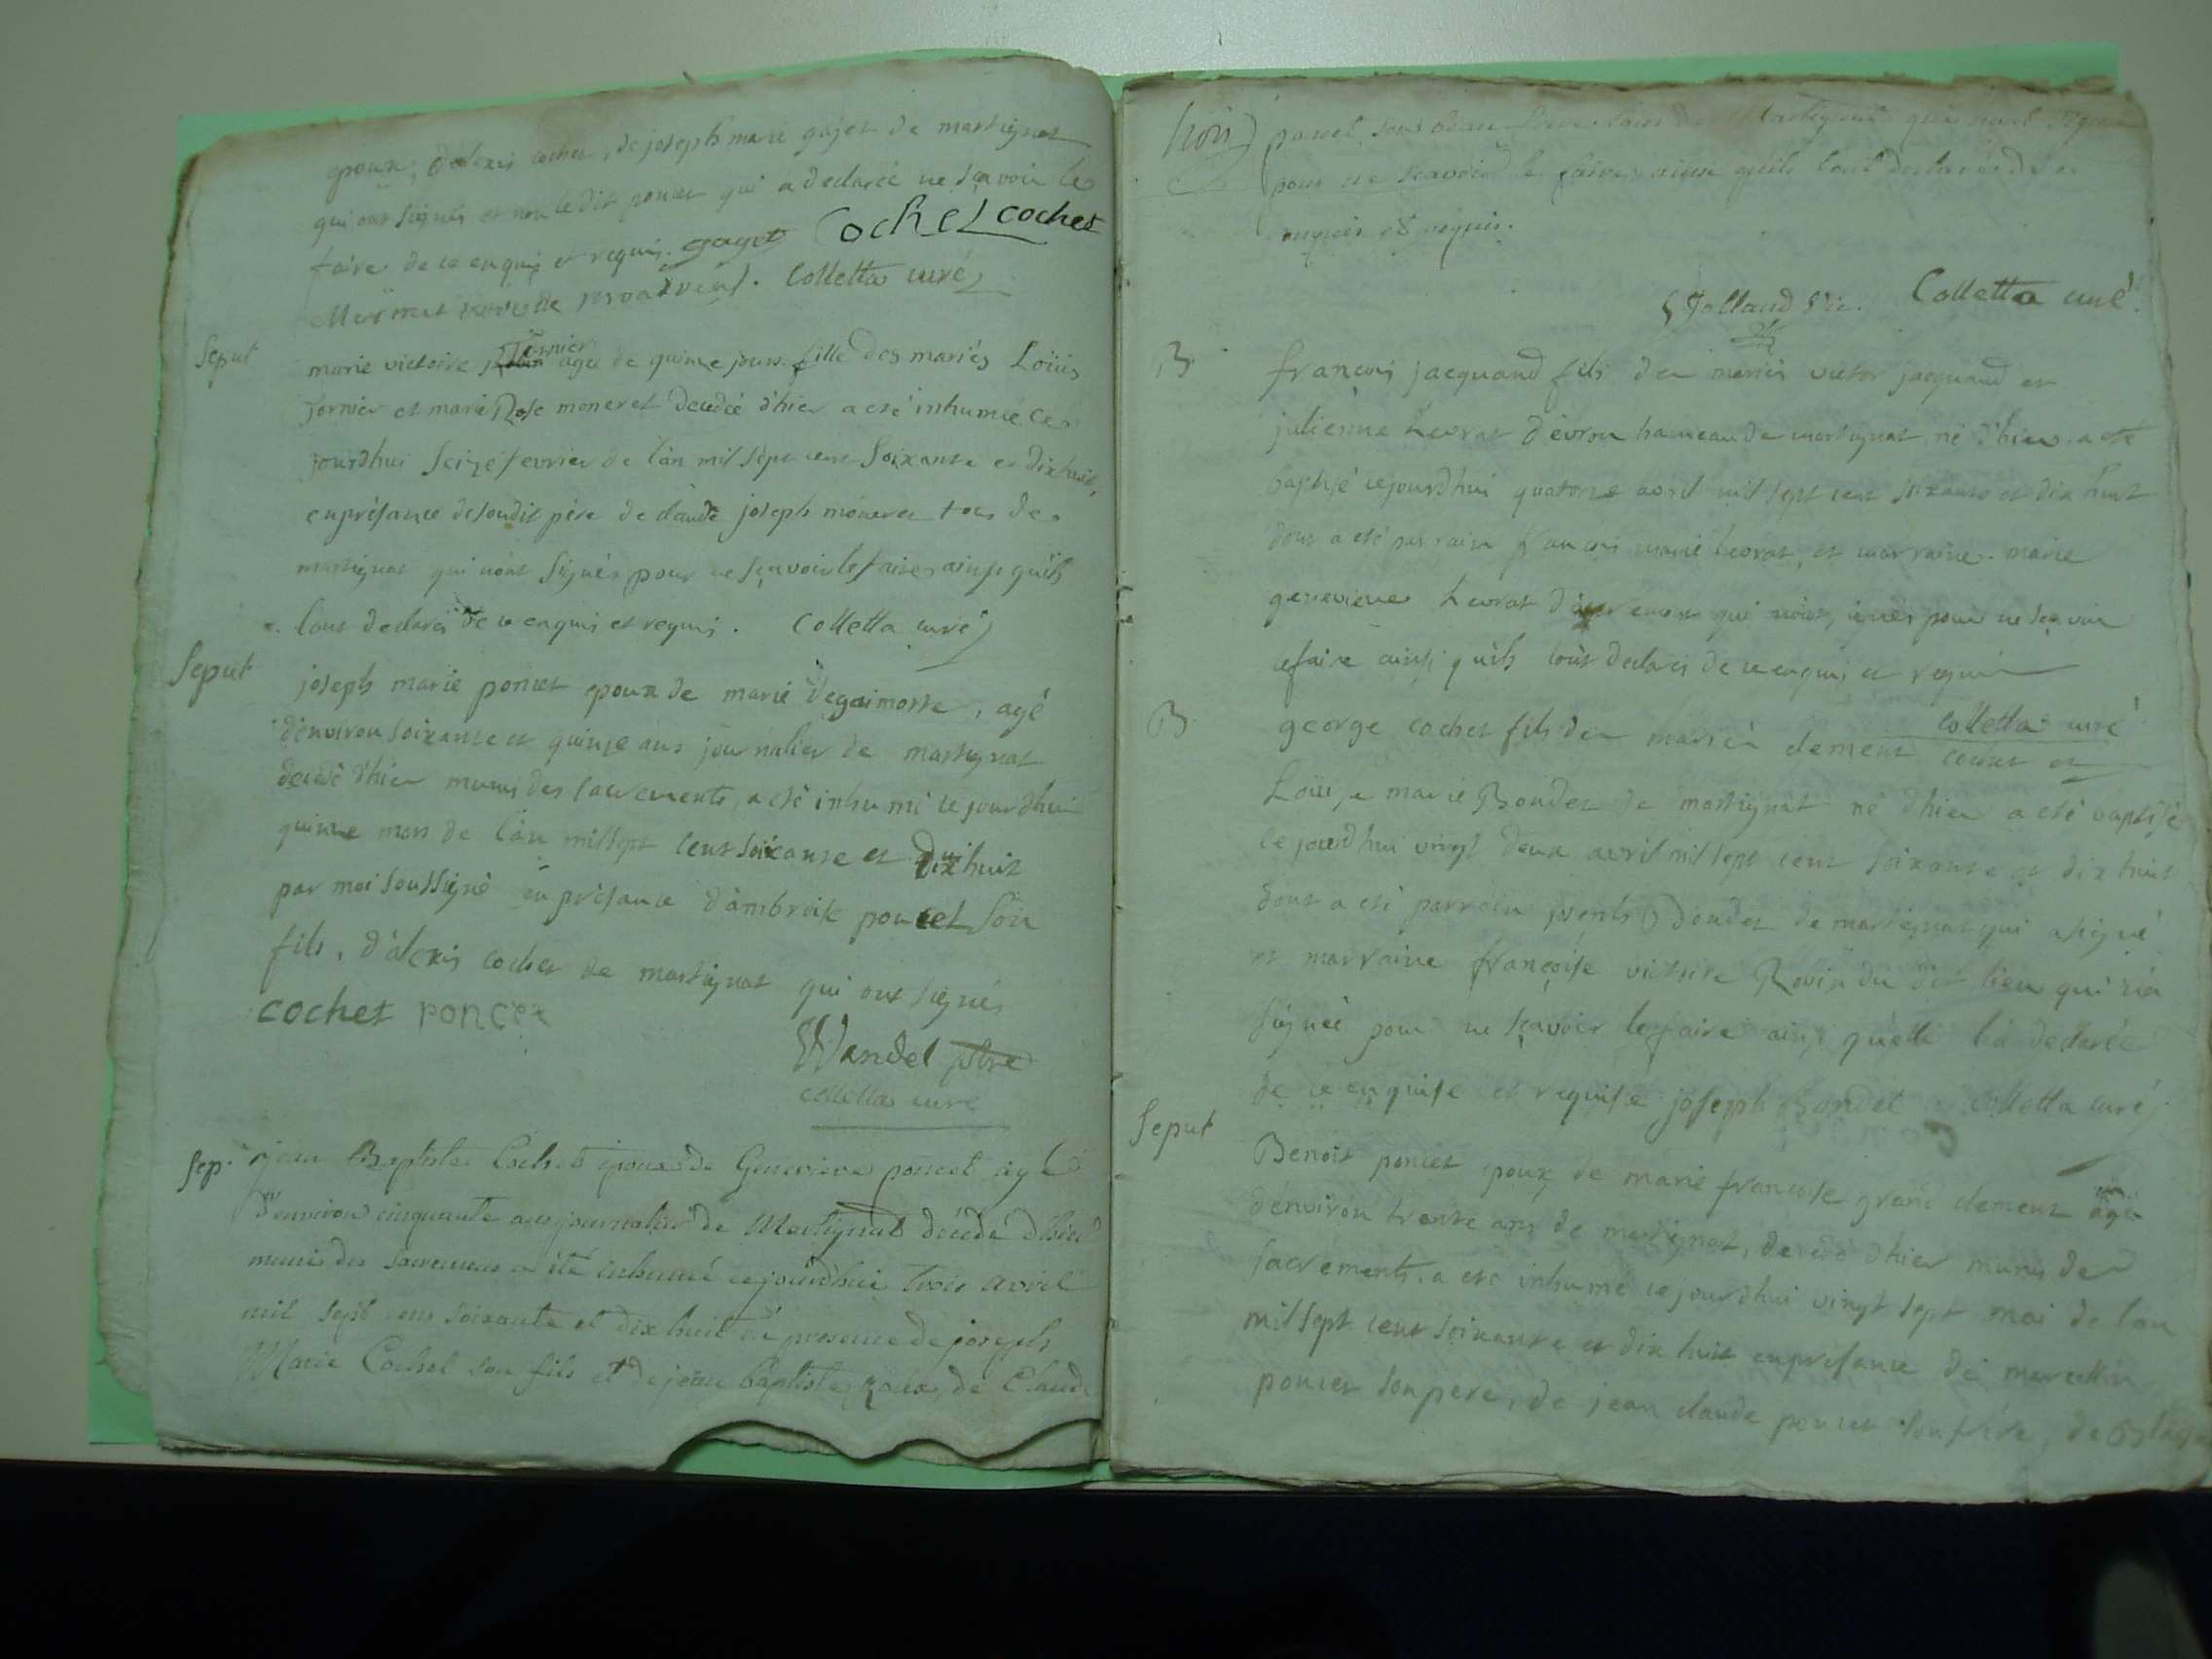 epoux, d'alexis cochet, de joseph marie gajet de martignat
qui ont signés et non ledit poncet qui a declaréé ne sçavoir le
faire de ce enquis et requis. gaget Cochet cochet
Colletta curé
Seput
marie victoire fornier agée de quinze jours fille des mariés Loüis
fornier et marie Rose moneret decedéé d'hier a eté inhumeé ce
jourdhui seize fevrier de l'an mil sept cent soixante et dixhuit,
en présance de soudit pére de claude joseph moneret tous de
martignat qui n'ont signés pour ne sçavoir le faire ainsi qu'ils
l'ont declarés de ce enquis et requis. Colletta curé
Seput
joseph marie poncet epoux de marie degaimoste, agé
d'environ soixante et quinze ans journalier de martignat
decedé d'hier munis des sacrements, a eté inhumé ce jourdhui
quinze mars de l'an mil sept cent soixante et dix huit
par moi soussigné en présance d'ambroise poncet son
fils, d'alexis cochet de martignat qui ont signés
cochet poncet
Wandel ptre
colletta curé
Sep.
jean Baptiste Cochet epoux de Genevieve poncet agé
d'environ cinquante ans journalier de Martignat décédé d'hier
munis des sacremens a été inhumé cejourd'hui trois avril
mil sept cens soixante et dix huit en presence de joseph
Marie Cochet son fils et de jean baptiste de Claude
poncet son beau de Martignat qui n'ont signé
pour ne scavoir le faire ainsi qu'ils l'ont declarés de ce
enquis et requis.
Jolland Vic. Colletta curé
B.
françois jacquand fils des mariés victor jacquand et
julienne hevrat d'évron hameau de martignat né d'hier a eté
baptisé cejourd'hui quatorze avril mil sept cent soixante et dix huit
dont a eté parrain françois marie hevrat, et marraine marie
genevieve hevrat qui n'ont signés pour ne sçavoir
le faire ainsi qu'ils l'ont declarés de ce enquis et requis
colletta curé
B
george cochet fils des mariés clement cochet et
Loüise marie Bondet de martignat né d'hier a eté baptisé
ce jourdhui vingt deux avril mil sept cent soixante et dix huit
dont a eté parrain joseph Bondet de martignat qui a signé
et marraine françoise victoire Rovin du dit lieu qui n'a
signéé pour ne sçavoir le faire ainsi qu'elle l'a declaréé
de ce enquise et requise joseph Bondet Colletta curé
Seput
Benoit poncet epoux de marie françoise grand clement agé
d'environ trente ans de martignat, decedé d'hier munis des
sacrements, a eté inhumé ce jourdhui vingt sept mai de l'an
mil sept cent soixante et dix huit en présance de marcellin
poncet son pere, de jean claude poncet son frére, de